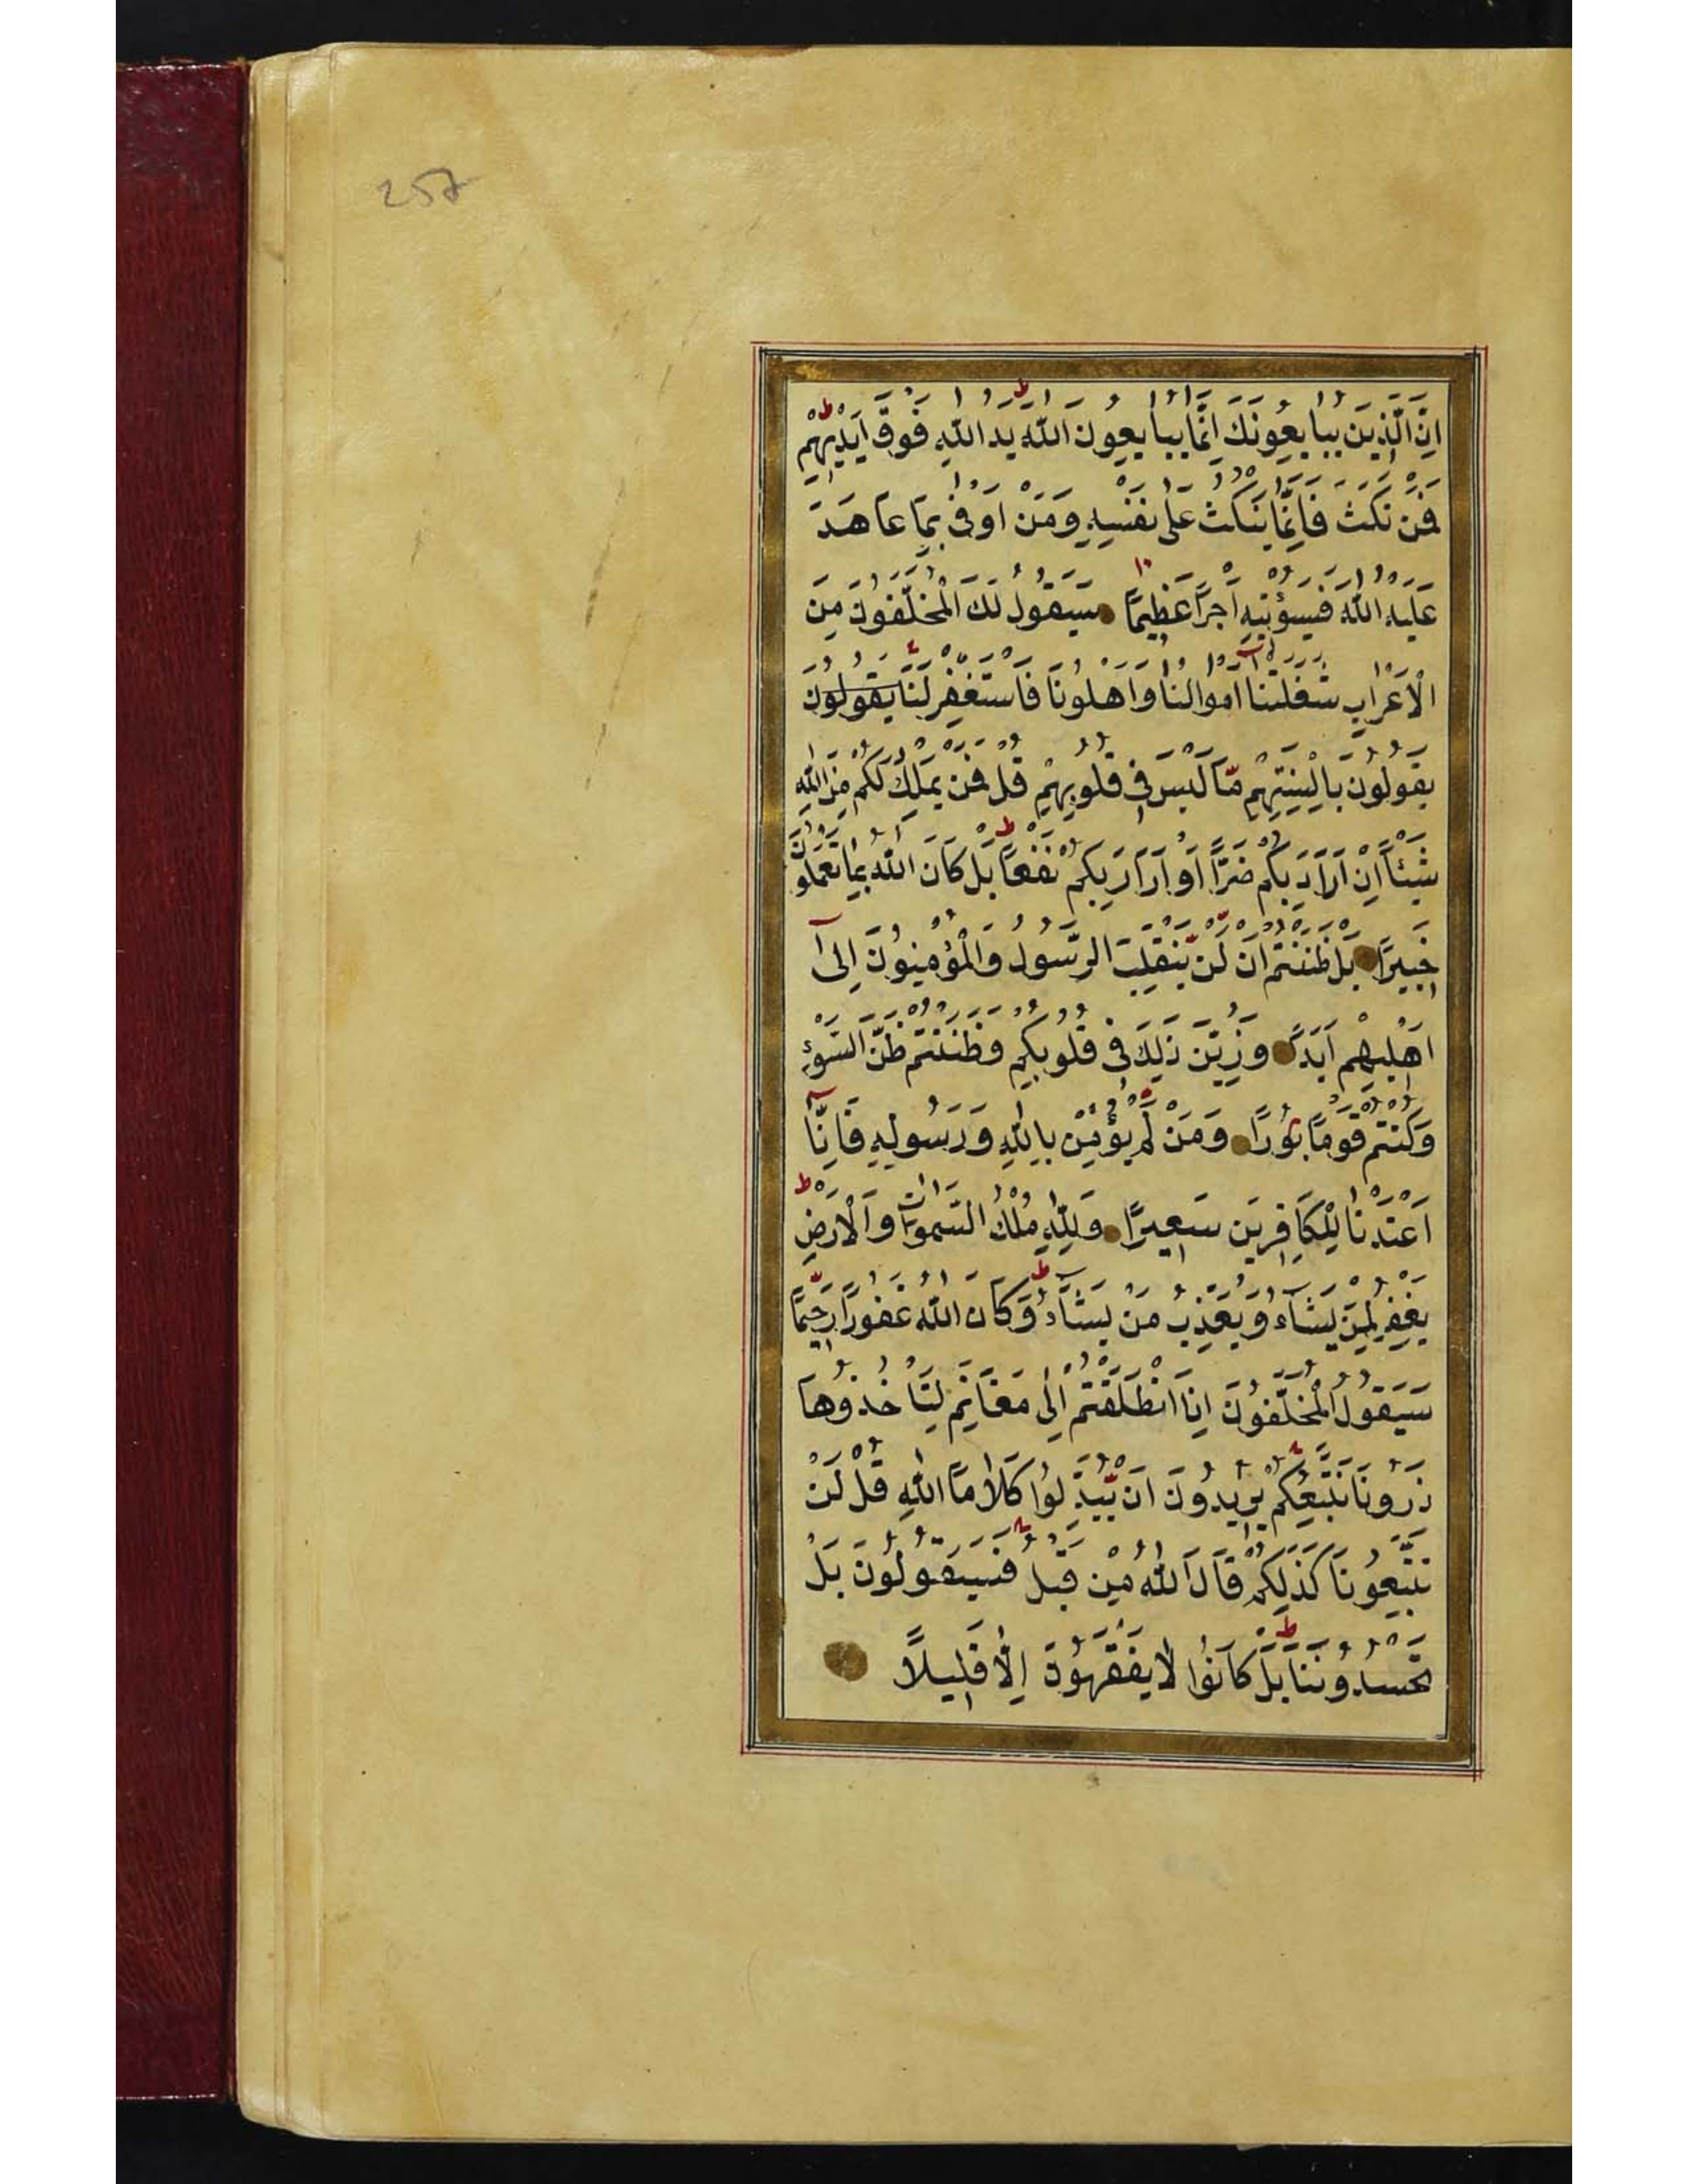 257
اِنَّ الَّذِينَ يُبايِعُونَكَ اِنَّمَا يُبايِعُونَ اللهَ يَدُ اللهِ فَوْقَ اَيْدِيهِمْ ط
فَمَنْ نَكَثَ فَاِنَّمَا يَنْكُثُ عَلى نَفْسِهِ وَمَنْ اَوْفى بِمَا عَاهَدَ
عَلَيْهُ اللهَ فَسَيُؤْتِيهِ اَجْرًا عَظِيمًا سَيَقُولُ لَكَ الْمُخَلَّفُونَ مِنَ
الْاَعْرَابِ شَغَلَتْنَا اَمْوَالُنَا وَاَهْلُونَا فَاسْتَغْفِرْ لَنَا يَقُولُونَ
يَقُولُونَ بِاَلْسِنَتِهِمْ مَّا لَيْسَ فِي قُلُوبِهِمْ قُلْ فَمَنْ يَمْلِكُ لَكُمْ مِنَ اللهِ
شَيْئًا اِنْ اَرَادَ بِكُمْ ضَرًّا اَوْ اَرَادَ بِكُمْ نَفْعًا ط بَلْ كَانَ اللهُ بِمَا تَعْمَلُونَ
خَبِيرًا بَلْ ظَنَنْتُمْ اَنْ لَّنْ يَّنْقَلِبَ الرَّسُولُ وَالْمُؤْمِنُونَ اِلىٓ
اَهْلِيهِمْ اَبَدًا وَزُيِّنَ ذلِكَ فِي قُلُوبِكُمْ وَظَنَنْتُمْ ظَنَّ السَّوْءِ
وَكُنْتُمْ قَوْمًا بُورًا وَمَنْ لَمْ يُؤْمِنْ بِاللهِ وَرَسُولِهِ فَاِنَّآ
اَعْتَدْنَا لِلْكَافِرِينَ سَعِيرًا وَلِلّهِ مُلْكُ السَّموَاتِ وَالْاَرْضِ ط
يَغْفِرُ لِمَنْ يَشَآءُ وَيُعَذِّبُ مَنْ يَشَآءُ ط وَكَانَ اللهُ غَفُورًا رَّحِيمًا
سَيَقُولُ الْمُخَلَّفُونَ اِذَا انْطَلَقْتُمْ اِلى مَغَانِمَ لِتَأْخُذُوهَا
ذَرُونَا نَتَّبِعْكُمْ يُرِيدُونَ اَنْ يُّبَدِّلُوا كَلَامَ اللهِ قُلْ لَنْ
تَتَّبِعُونَا كَذلِكُمْ قَالَ اللهُ مِنْ قَبْلُ فَسَيَقُولُونَ بَلْ
تَحْسُدُونَنَا ط بَلْ كَانُوا لَا يَفْقَهُونَ اِلَّا قَلِيلًا